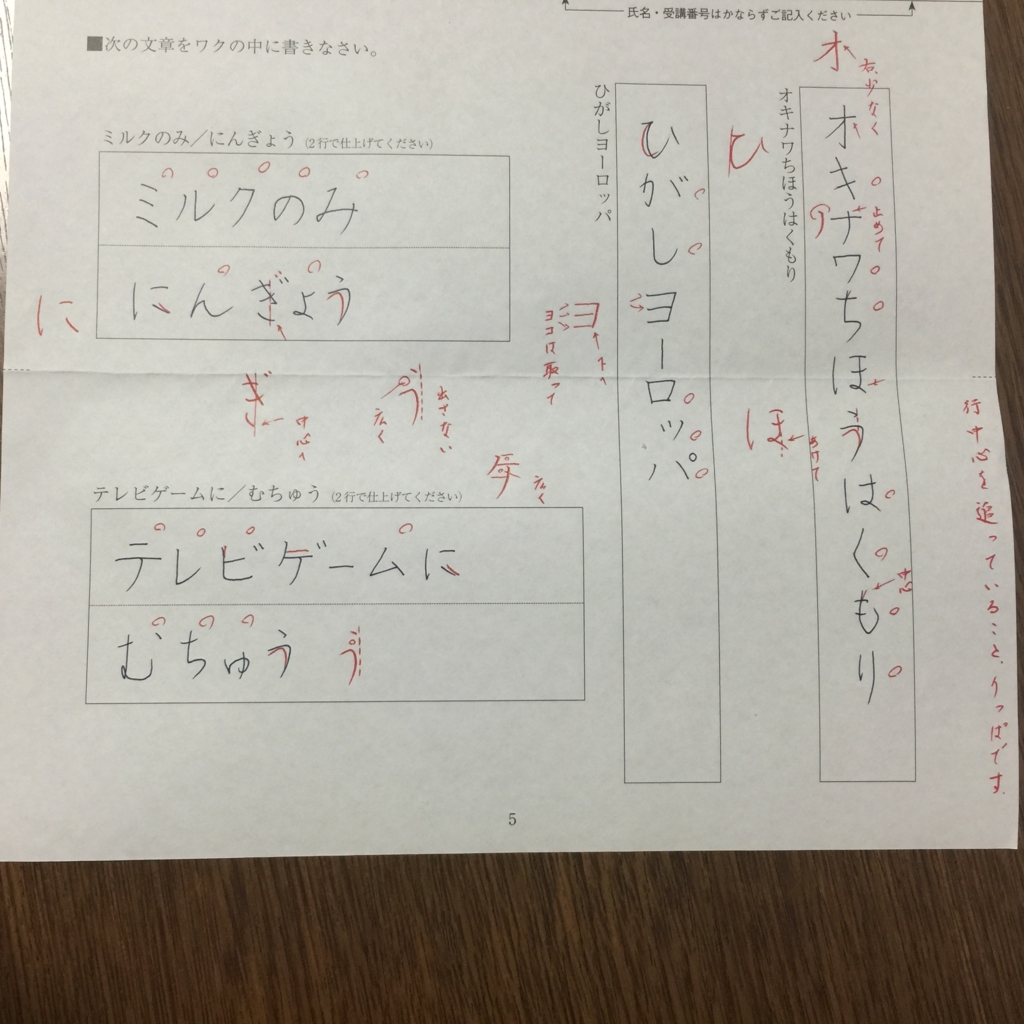 氏名・受講番号はかならずご記入ください
■次の文章をワクの中に書きなさい。
オ
右、少なく
オキナワちほうはくもり
オキナワちほうはくもり
止めて
ほ
あけて
行中心を追っていること、りっぱです。
ひ
ひがしヨーロッパ
ひがしヨーロッパ
ヨ
ヨコは取って
ミルクのみ/にんぎょう(2行で仕上げてください)
ミルクのみ
にんぎょう
に
ぎ
中心へ
う
広く
出さない
テレビゲームに/むちゅう(2行で仕上げてください)
広く
テレビゲームに
むちゅう
う
5